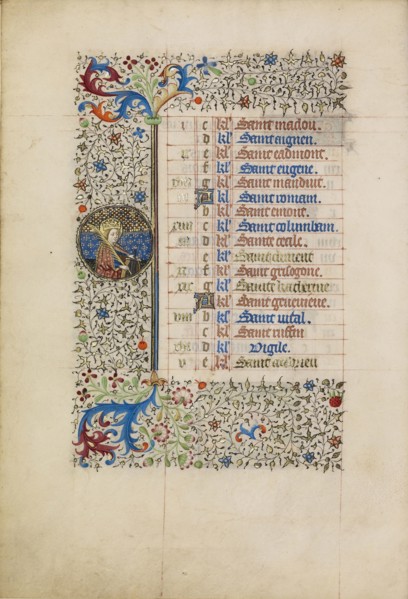 v c kl Saint macou.
d kl Saint aignen.
e kl Saint eadmont.
f kl Saint eugene.
g kl Saint
A kl Saint romain.
b kl Saint emont.
c kl Saint columbam.
d kl Sainte cecile.
e kl Saint clement
f kl Saint grisogone.
g kl Sainte katherine
A kl Sainte genevieve.
viii b kl Saint vital.
c kl Saint ruffin
d kl Vigile.
v e kl Saint andrieu